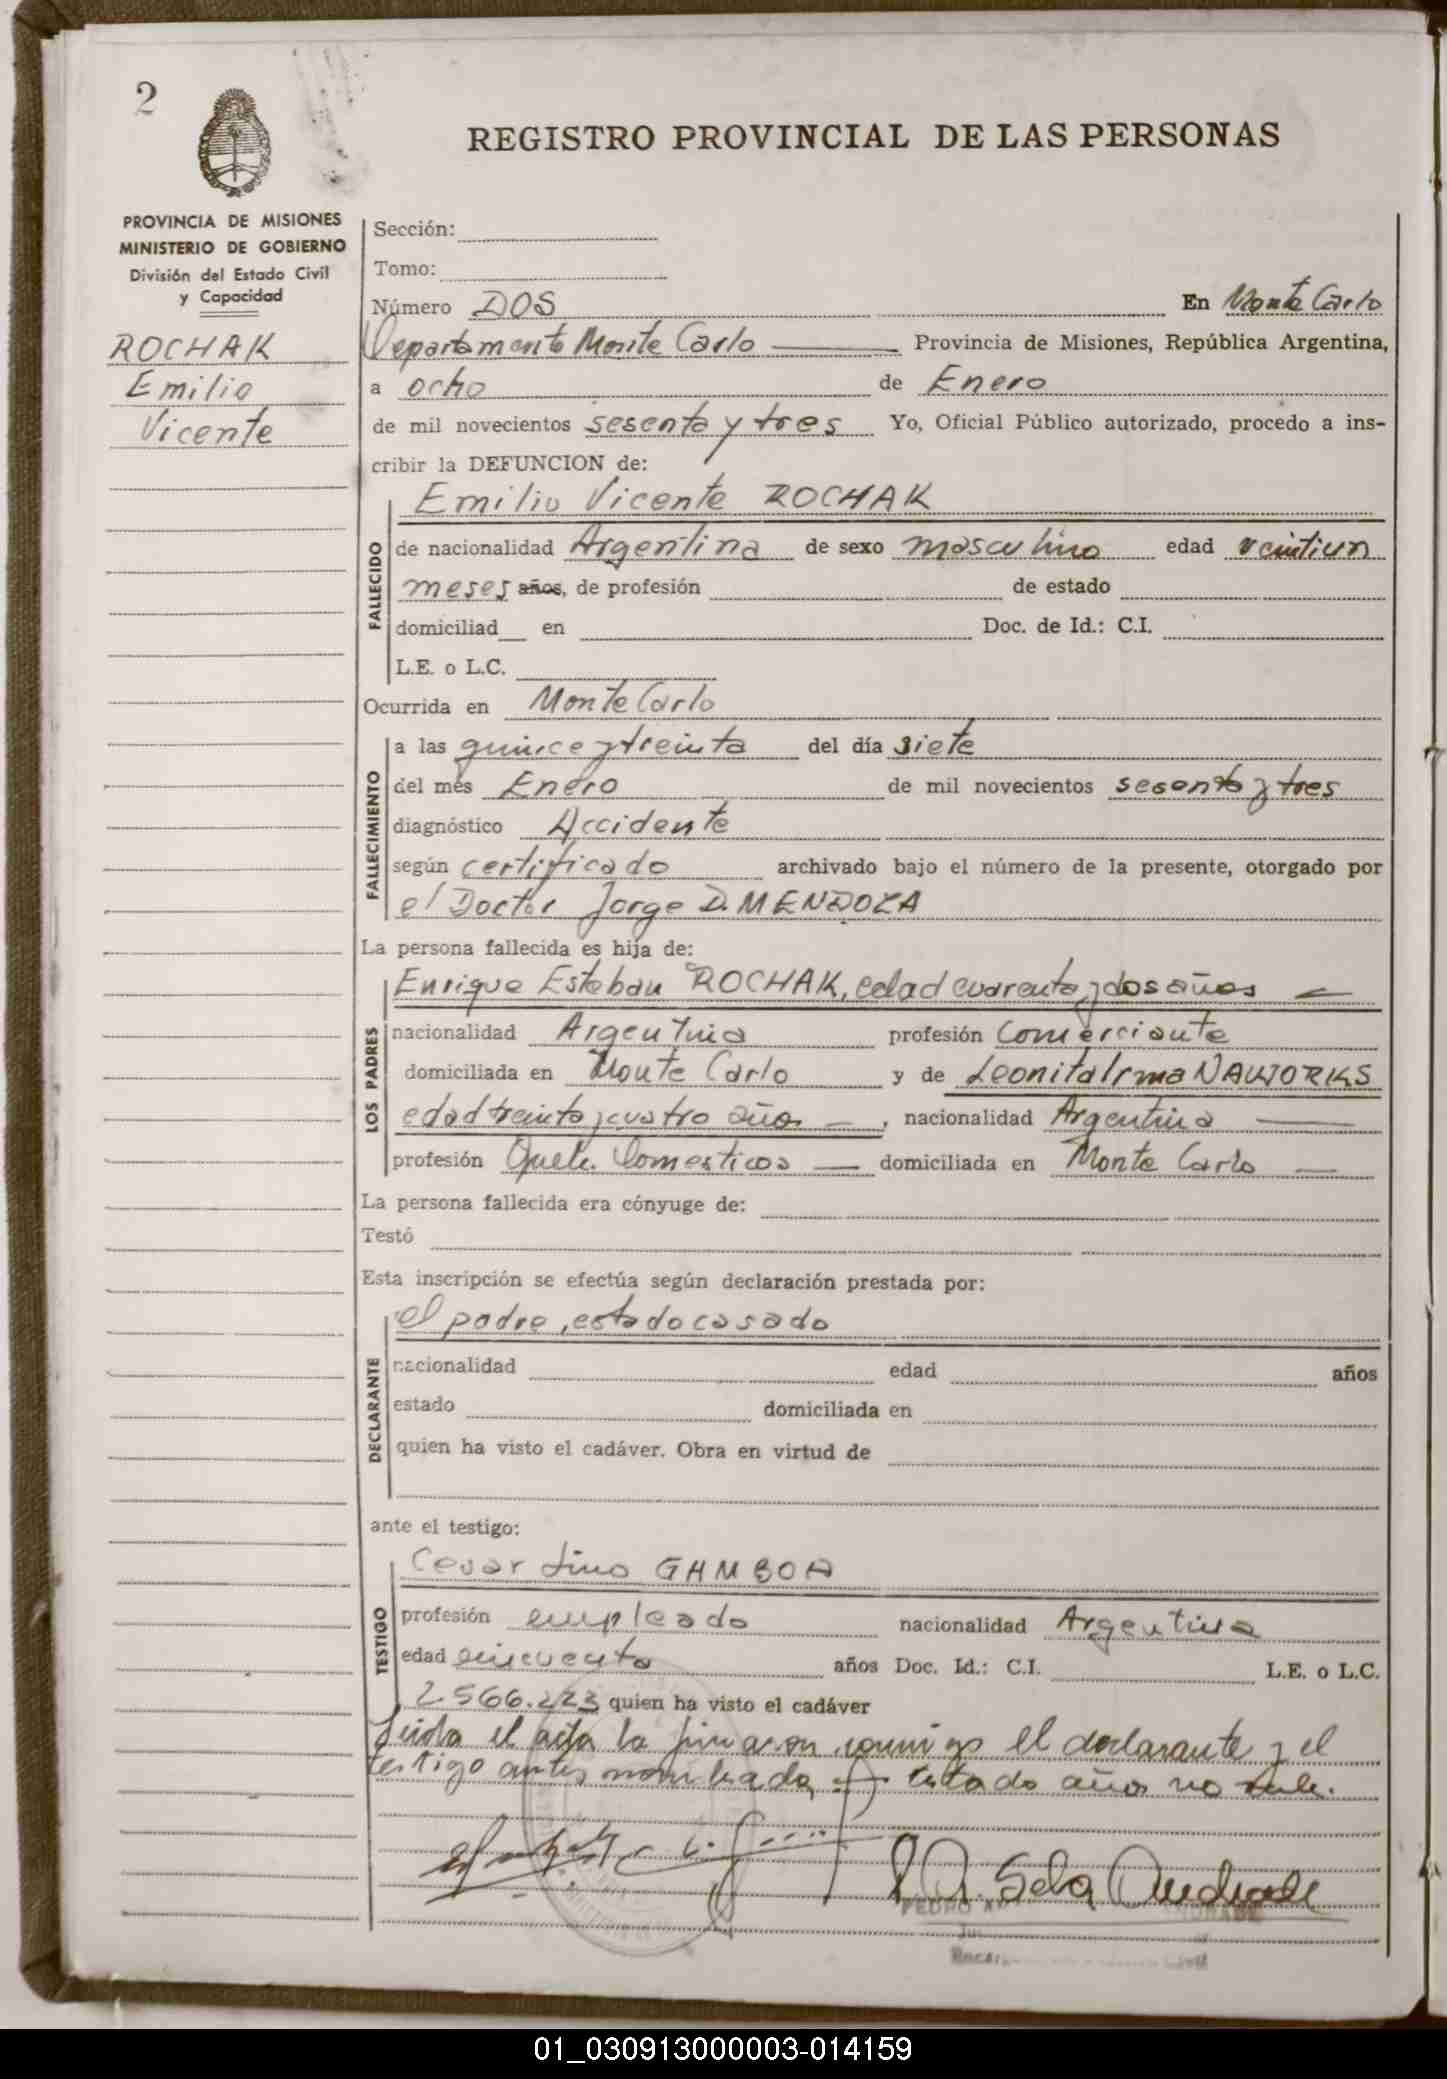 2
REGISTRO PROVINCIAL DE LAS PERSONAS
PROVINCIA DE MISIONES
MINISTERIO DE GOBIERNO
División del Estado Civil
y Capacidad
ROCHAK
Emilio
Vicente
Sección:
Tomo:
Número DOS En Monte Carlo
Departamento Monte Carlo Provincia de Misiones, República Argentina,
a ocho de Enero
de mil novecientos sesenta y tres Yo, Oficial Público autorizado, procedo a ins-
cribir la DEFUNCION de:
Emilio Vicente ROCHAK
FALLECIDO
de nacionalidad Argentina de sexo masculino edad veintiun
meses años, de profesión de estado
domiciliad en Doc. de Id.: C.I.
L.E. o L.C.
Ocurrida en Monte Carlo
FALLECIMIENTO
a las quince y treinta del día siete
del més Enero de mil novecientos sesenta y tres
diagnóstico Accidente
según certificado archivado bajo el número de la presente, otorgado por
el Doctor Jorge D. MENDOZA
La persona fallecida es hija de:
LOS PADRES
Enrique Esteban ROCHAK, edad cuarenta y dos años
nacionalidad Argentina profesión Comerciante
domiciliada en Monte Carlo y de Leonita Irma
edad treinta y cuatro años, nacionalidad Argentina
profesión Queh. Domesticos domiciliada en Monte Carlo
La persona fallecida era cónyuge de:
Testó
Esta inscripción se efectúa según declaración prestada por:
DECLARANTE
el padre, estado casado
nacionalidad edad años
estado domiciliada en
quien ha visto el cadáver. Obra en virtud de
ante el testigo:
TESTIGO
Cesar Lino GAMBOA
profesión empleado nacionalidad Argentina
edad cincuenta años Doc. Id.: C.I. L.E. o L.C.
2.566.223 quien ha visto el cadáver
Leida el acta la firmaron conmigo el declarante y el
testigo antes nombrado testado años no vale.
PEDRO
01_030913000003-014159